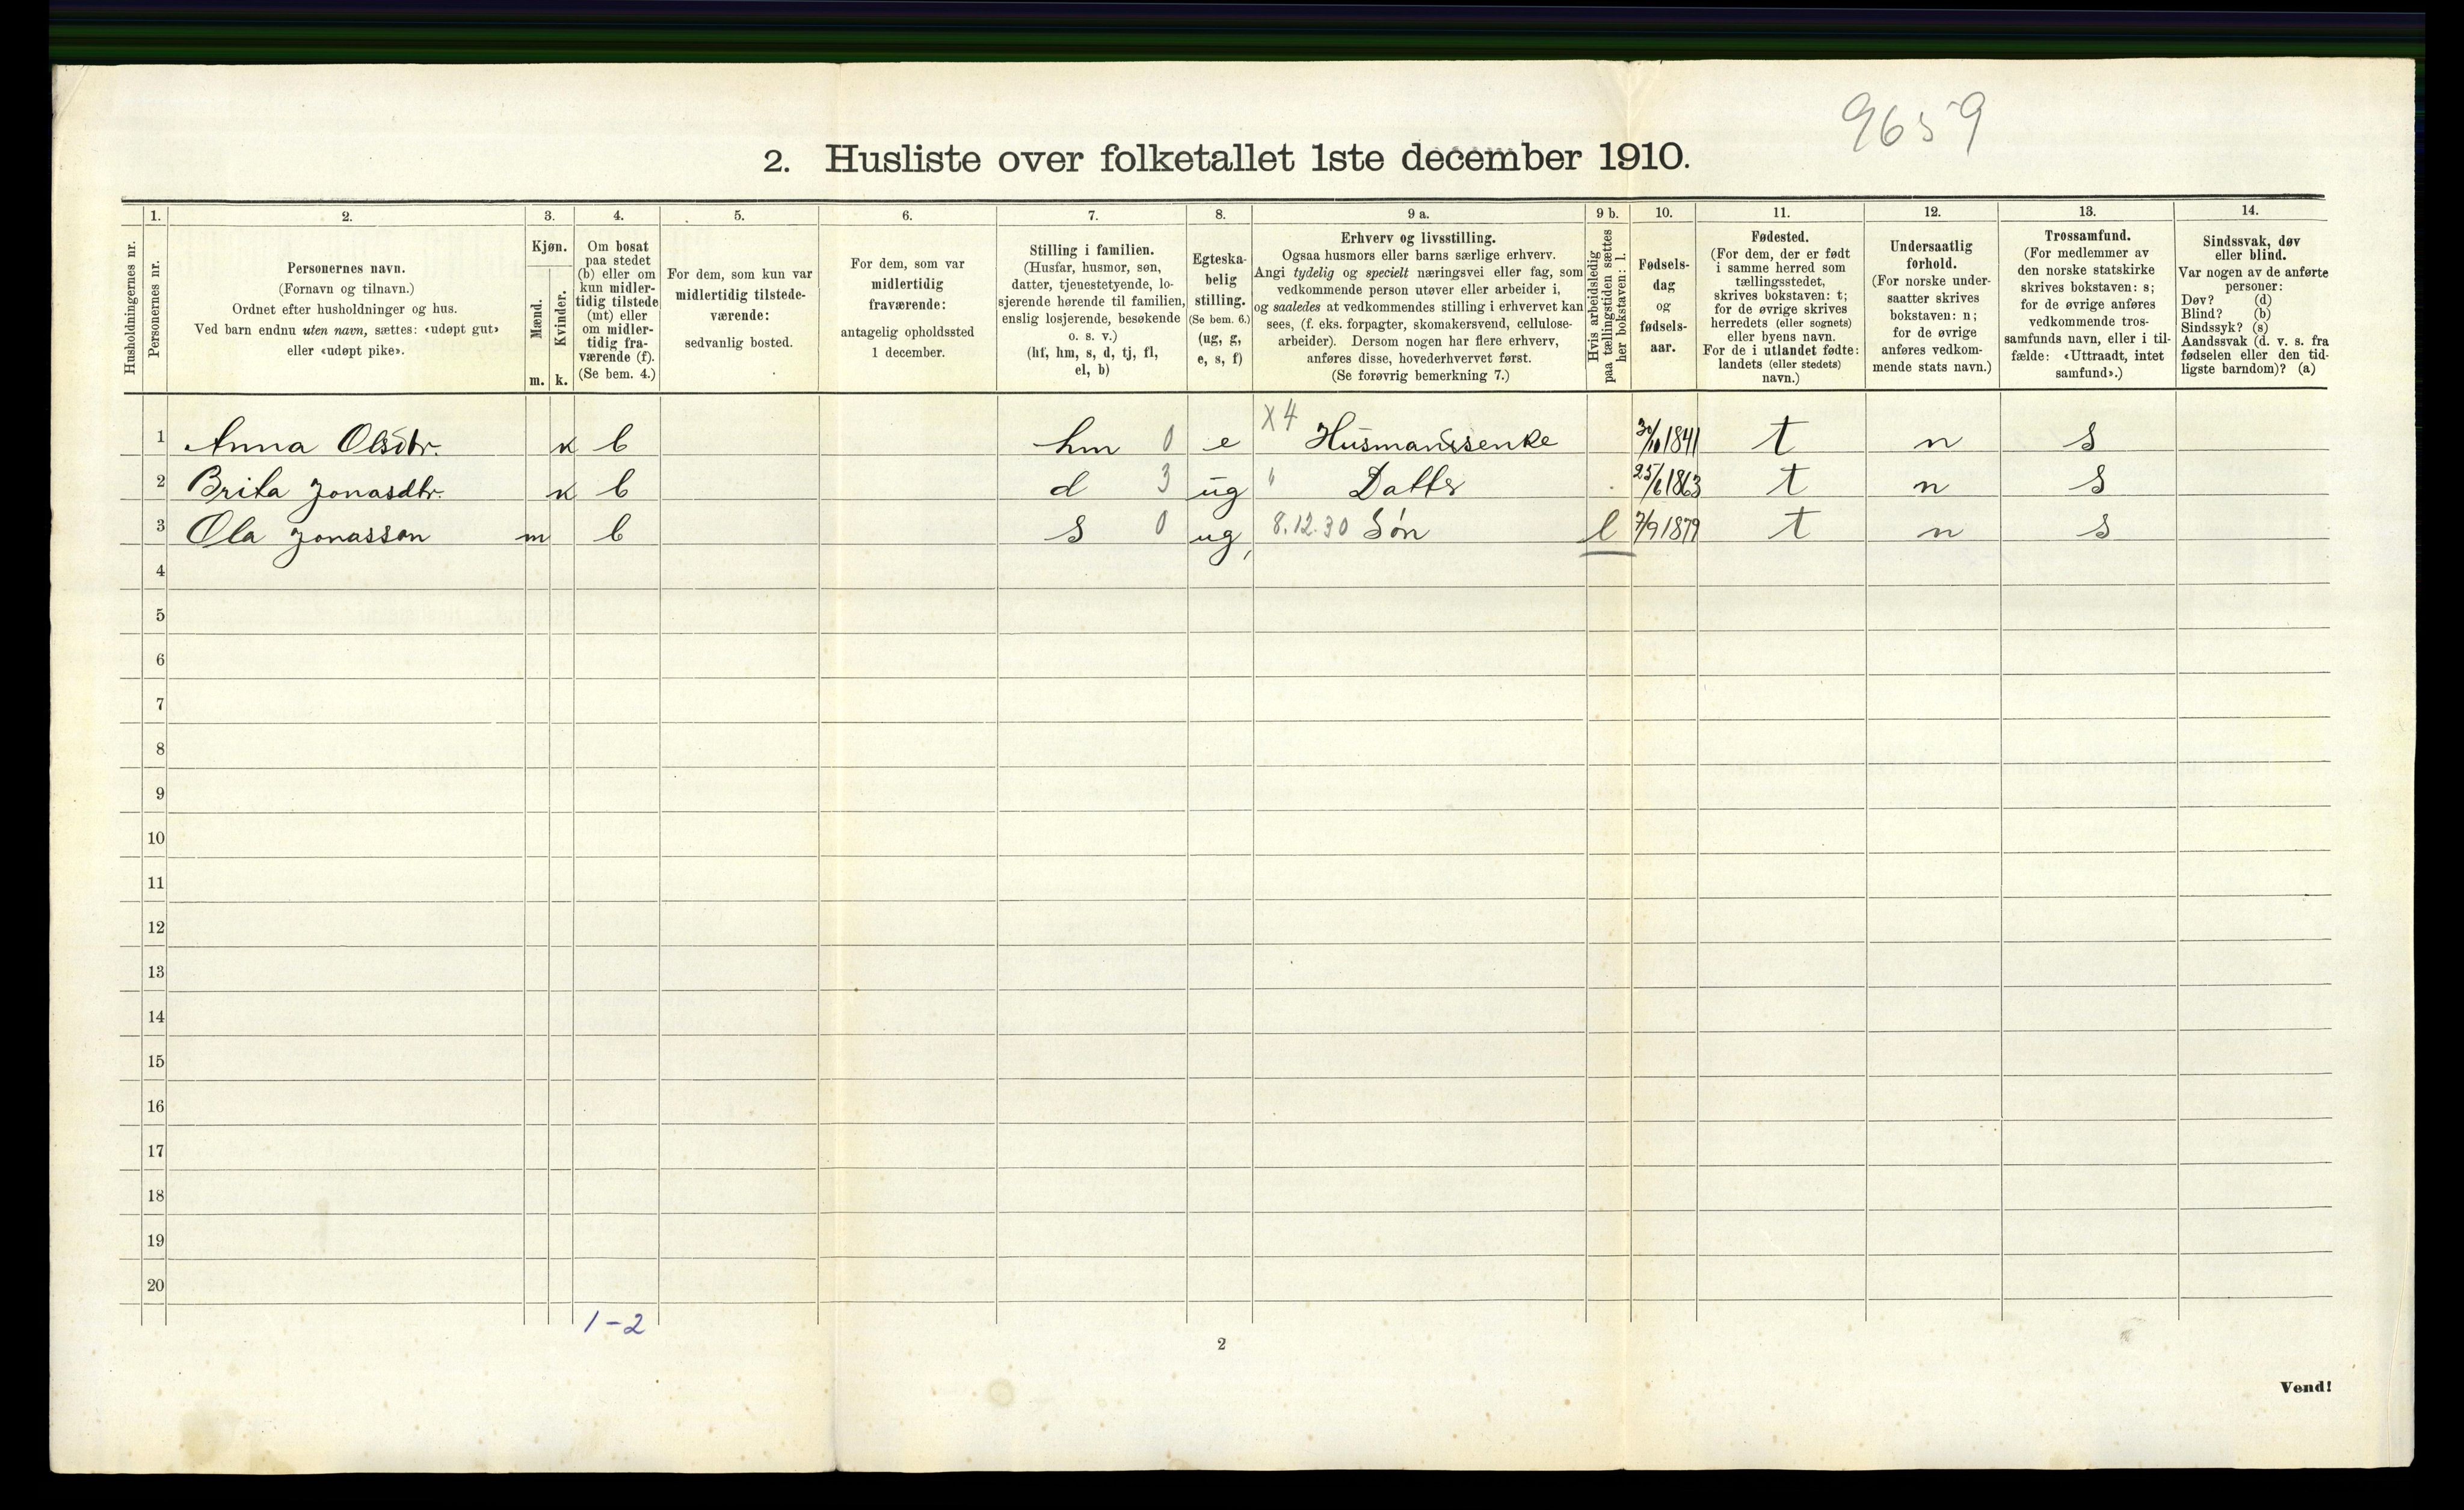 9659
2. Husliste over folketallet 1ste december 1910.
1. 2. 3. 4. 5. 6. 7. 8. 9 a. 9 b. 10. 11. 12. 13. 14.
Husholdningernes nr.
Personernes nr.
Personernes navn.
(Fornavn og tilnavn.)
Ordnet efter husholdninger og hus.
Ved barn endnu uten navn, sættes: «udøpt gut»
eller «udøpt pike».
Kjøn.
Mænd.
Kvinder.
m. k.
Om bosat
paa stedet
(b) eller om
kun midler-
tidig tilstede
(mt) eller
om midler-
tidig fra-
værende (f).
(Se bem. 4.)
For dem, som kun var
midlertidig tilstede-
værende:
sedvanlig bosted.
For dem, som var
midlertidig
fraværende:
antagelig opholdssted
1 december.
Stilling i familien.
(Husfar, husmor, søn,
datter, tjenestetyende, lo-
sjerende hørende til familien,
enslig losjerende, besøkende
o. s. v.)
(hf, hm, s, d, tj, fl,
el, b)
Egteska-
belig
stilling.
(Se bem. 6.)
(ug, g,
e, s, f)
Erhverv og livsstilling.
Ogsaa husmors eller barns særlige erhverv.
Angi tydelig og specielt næringsvei eller fag, som
vedkommende person utøver eller arbeider i,
og saaledes at vedkommendes stilling i erhvervet kan
sees, (f. eks. forpagter, skomakersvend, cellulose-
arbeider). Dersom nogen har flere erhverv,
anføres disse, hovederhvervet først.
(Se forøvrig bemerkning 7.)
Hvis arbeidsledig
paa tællingstiden sættes
her bokstaven: l.
Fødsels-
dag
og
fødsels-
aar.
Fødested.
(For dem, der er født
i samme herred som
tællingsstedet,
skrives bokstaven: t;
for de øvrige skrives
herredets (eller sognets)
eller byens navn.
For de i utlandet fødte:
landets (eller stedets)
navn.)
Undersaatlig
forhold.
(For norske under-
saatter skrives
bokstaven: n;
for de øvrige
anføres vedkom-
mende stats navn.)
Trossamfund.
(For medlemmer av
den norske statskirke
skrives bokstaven: s;
for de øvrige anføres
vedkommende tros-
samfunds navn, eller i til-
fælde: «Uttraadt, intet
samfund».)
Sindssvak, døv
eller blind.
Var nogen av de anførte
personer:
Døv? (d)
Blind? (b)
Sindssyk? (s)
Aandssvak (d. v. s. fra
fødselen eller den tid-
ligste barndom)? (a)
1 Anna Olsdtr. k b hm 0 e X4 Husmandsenke 30/10 1841 t n s
2 Brita Jonasdtr. k b d 3 ug Datter 25/6 1863 t n s
3 Ola Jonasson m b s 0 ug, 8.12.30 Søn l 7/9 1879 t n s
4
5
6
7
8
9
10
11
12
13
14
15
16
17
18
19
20
1-2
2
Vend!